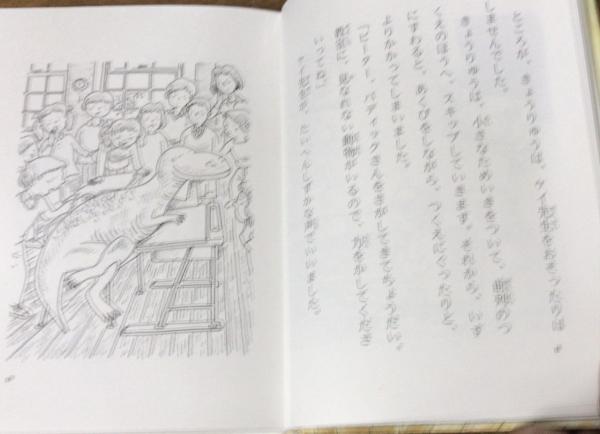 ところが、きょうりゅうは、ケイ先生をおそったのは
しませんでした。
きょうりゅうは、小さなためいきをついて、
くえのほうへ、スキップしていきます。それから、いす
にすわると、あくびをしながら、つくえにぐったりと、
よりかかってしまいました。
「ピーター、パディックさんをさがしてきてちょうだい。
教室に、見なれない動物がいるので、力をかしてくださ
いってね」
ケイ先生が、たいへんしずかな声でいいました。